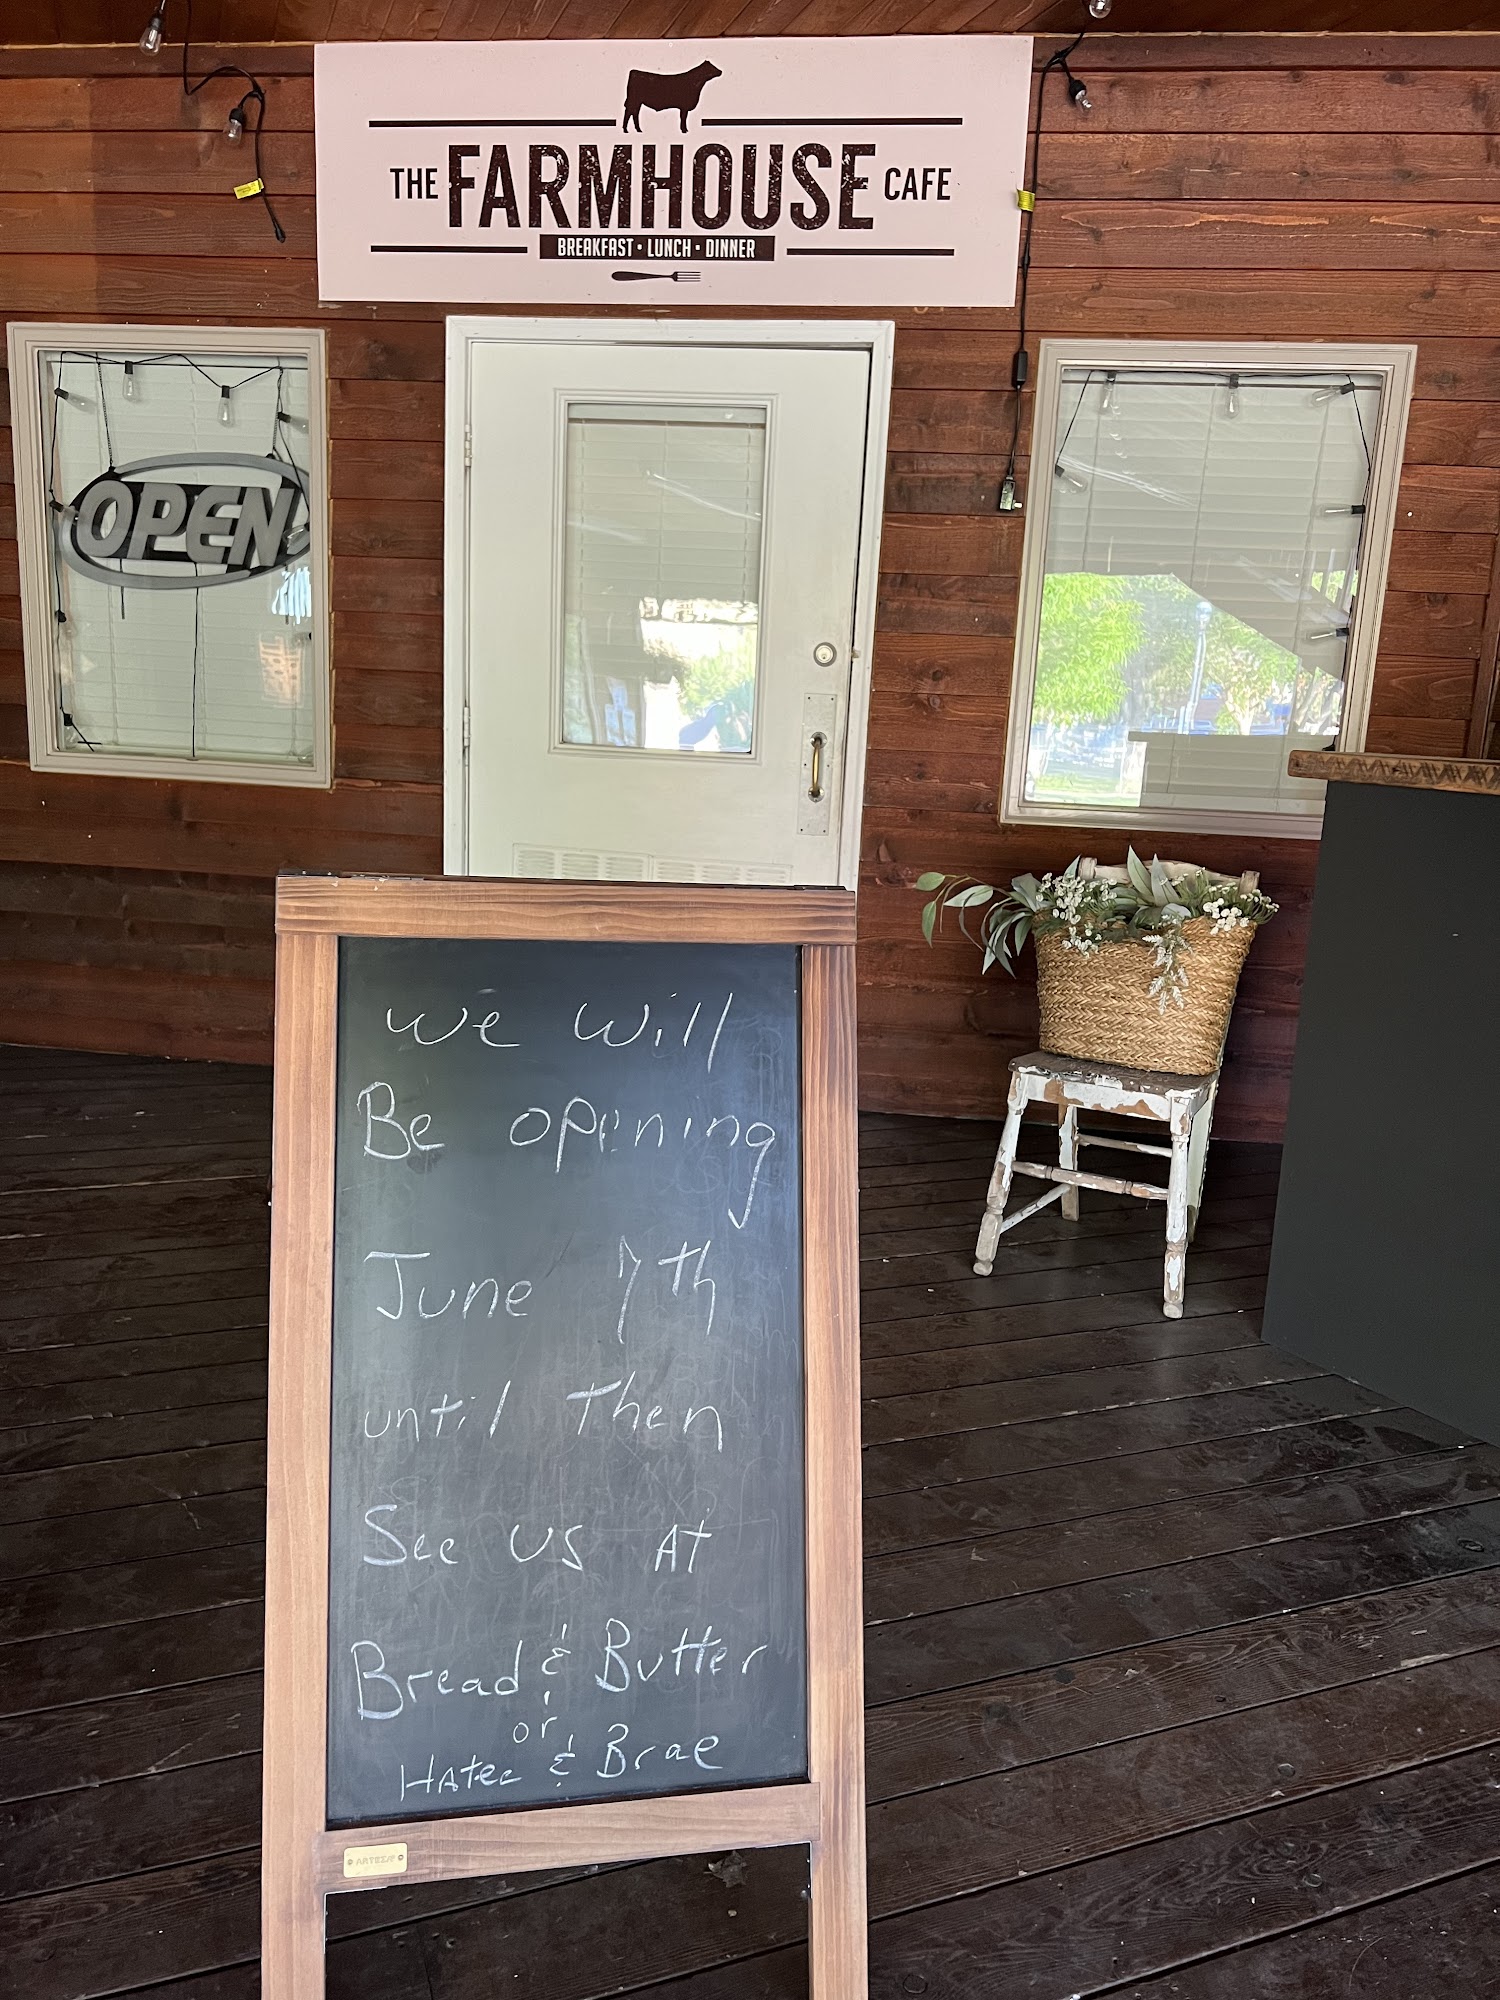 THE FARMHOUSE CAFE
BREAKFAST • LUNCH • DINNER
OPEN
We Will
Be opening
June 7th
until Then
See us At
Bread & Butter
or
HAtee & Brae